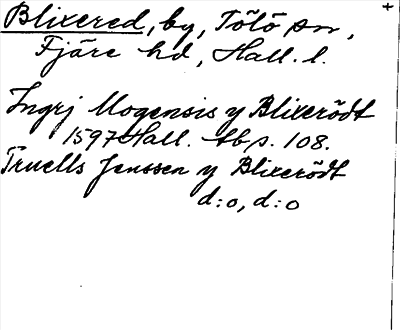 Blixered, by, Tölö sn,
Fjäre hd, Hall. l.
Ingrj Mogensis y Blixerödt
1597 Hall. tb s. 108.
Truells Jenssen y Blixerödt
d:o, d:o